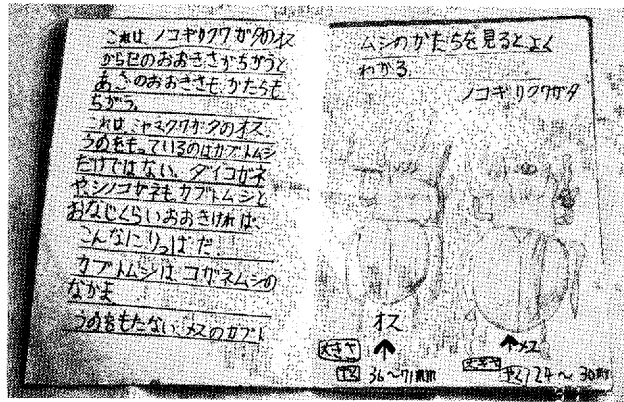 これは、ノコギリクワガタのオス
からだのおおきさがちがうと
あごのおおきさも、かたちも
ちがう。
これは、ミヤマクワガタのオス.
つのをもっているのはカブトムシ
だけではない、ダイコガネ
やシノコガネもカブトムシと
おなじくらいおおきければ、
こんなにりっぱだ.
カブトムシは、コガネムシの
なかま
つのをもたない、メスのカブト
ムシのかたちを見るとよく
わかる.
ノコギリクワガタ
オス
メス
大きさ
大きさ
やく 36〜71mm
やく 24〜30mm